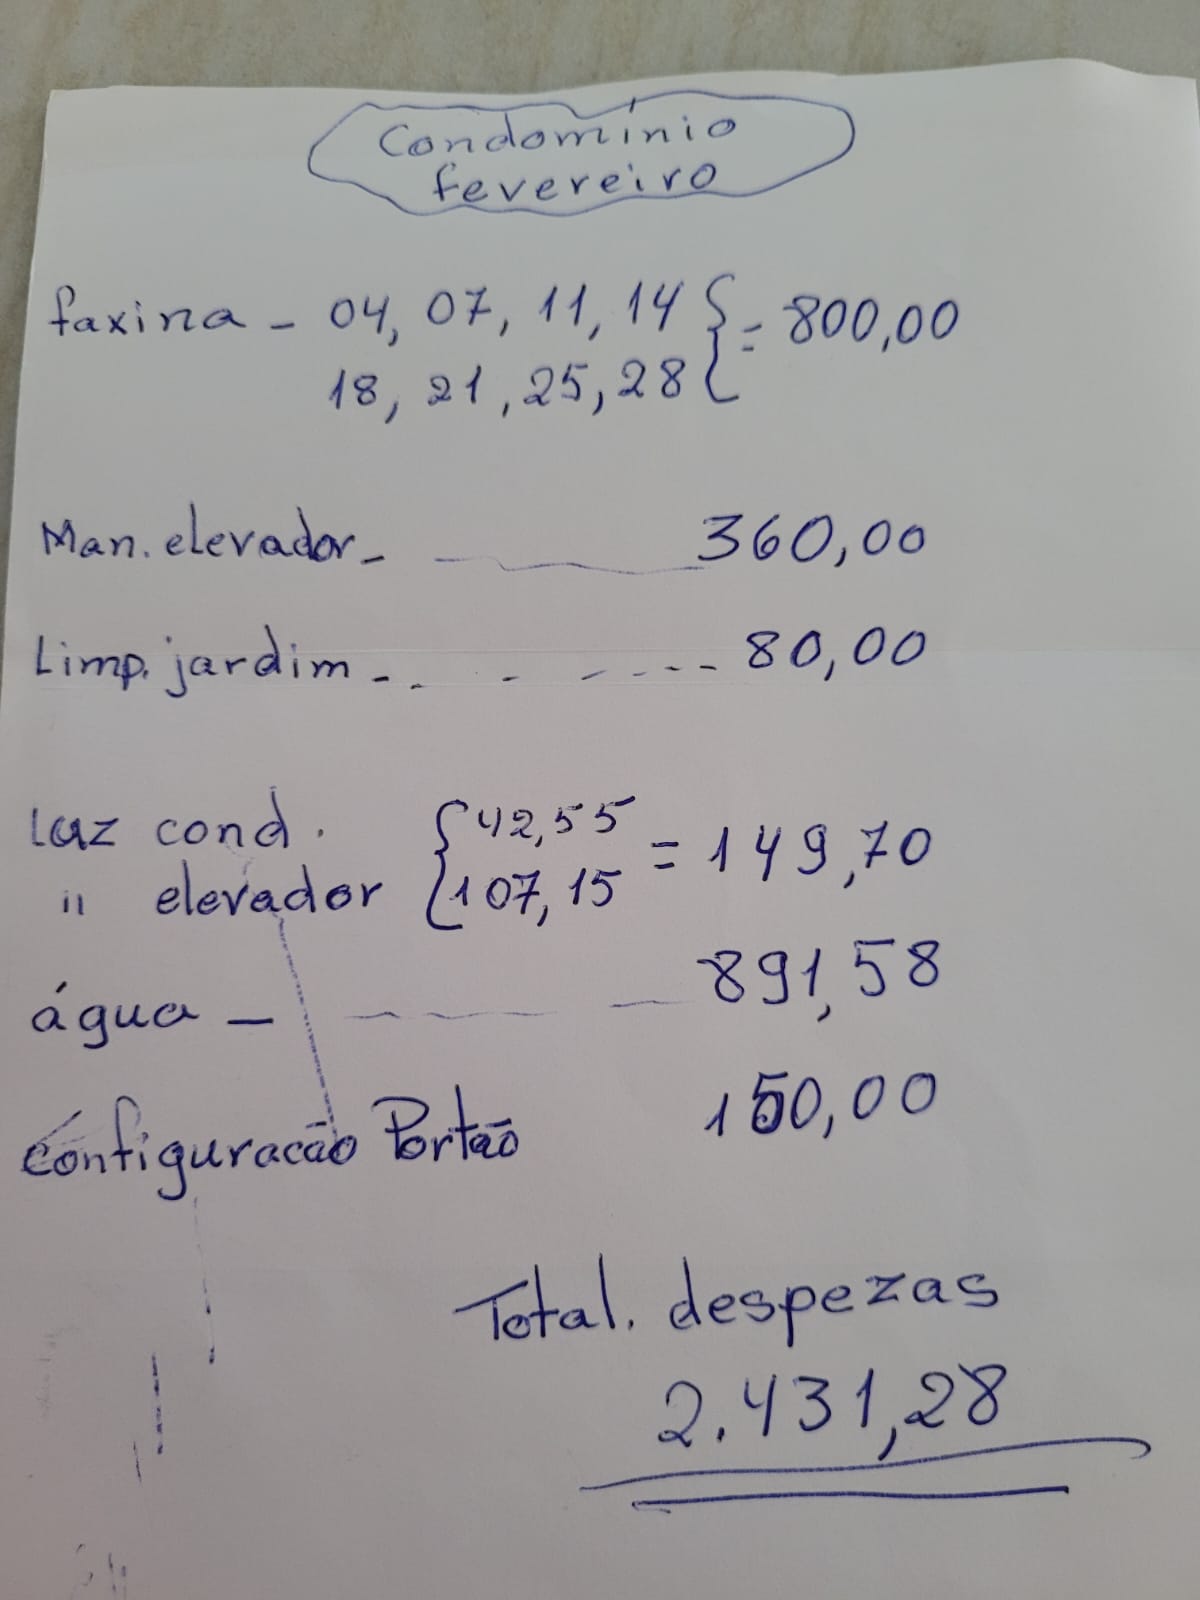 Condomínio
fevereiro
faxina - 04, 07, 11, 14 } = 800,00
18, 21, 25, 28
Man. elevador - 360,00
Limp. jardim - 80,00
Luz cond. { 42,55 = 149,70
" elevador 107,15
água - 891,58
Configuracão Portão 150,00
Total. despezas
2.431,28